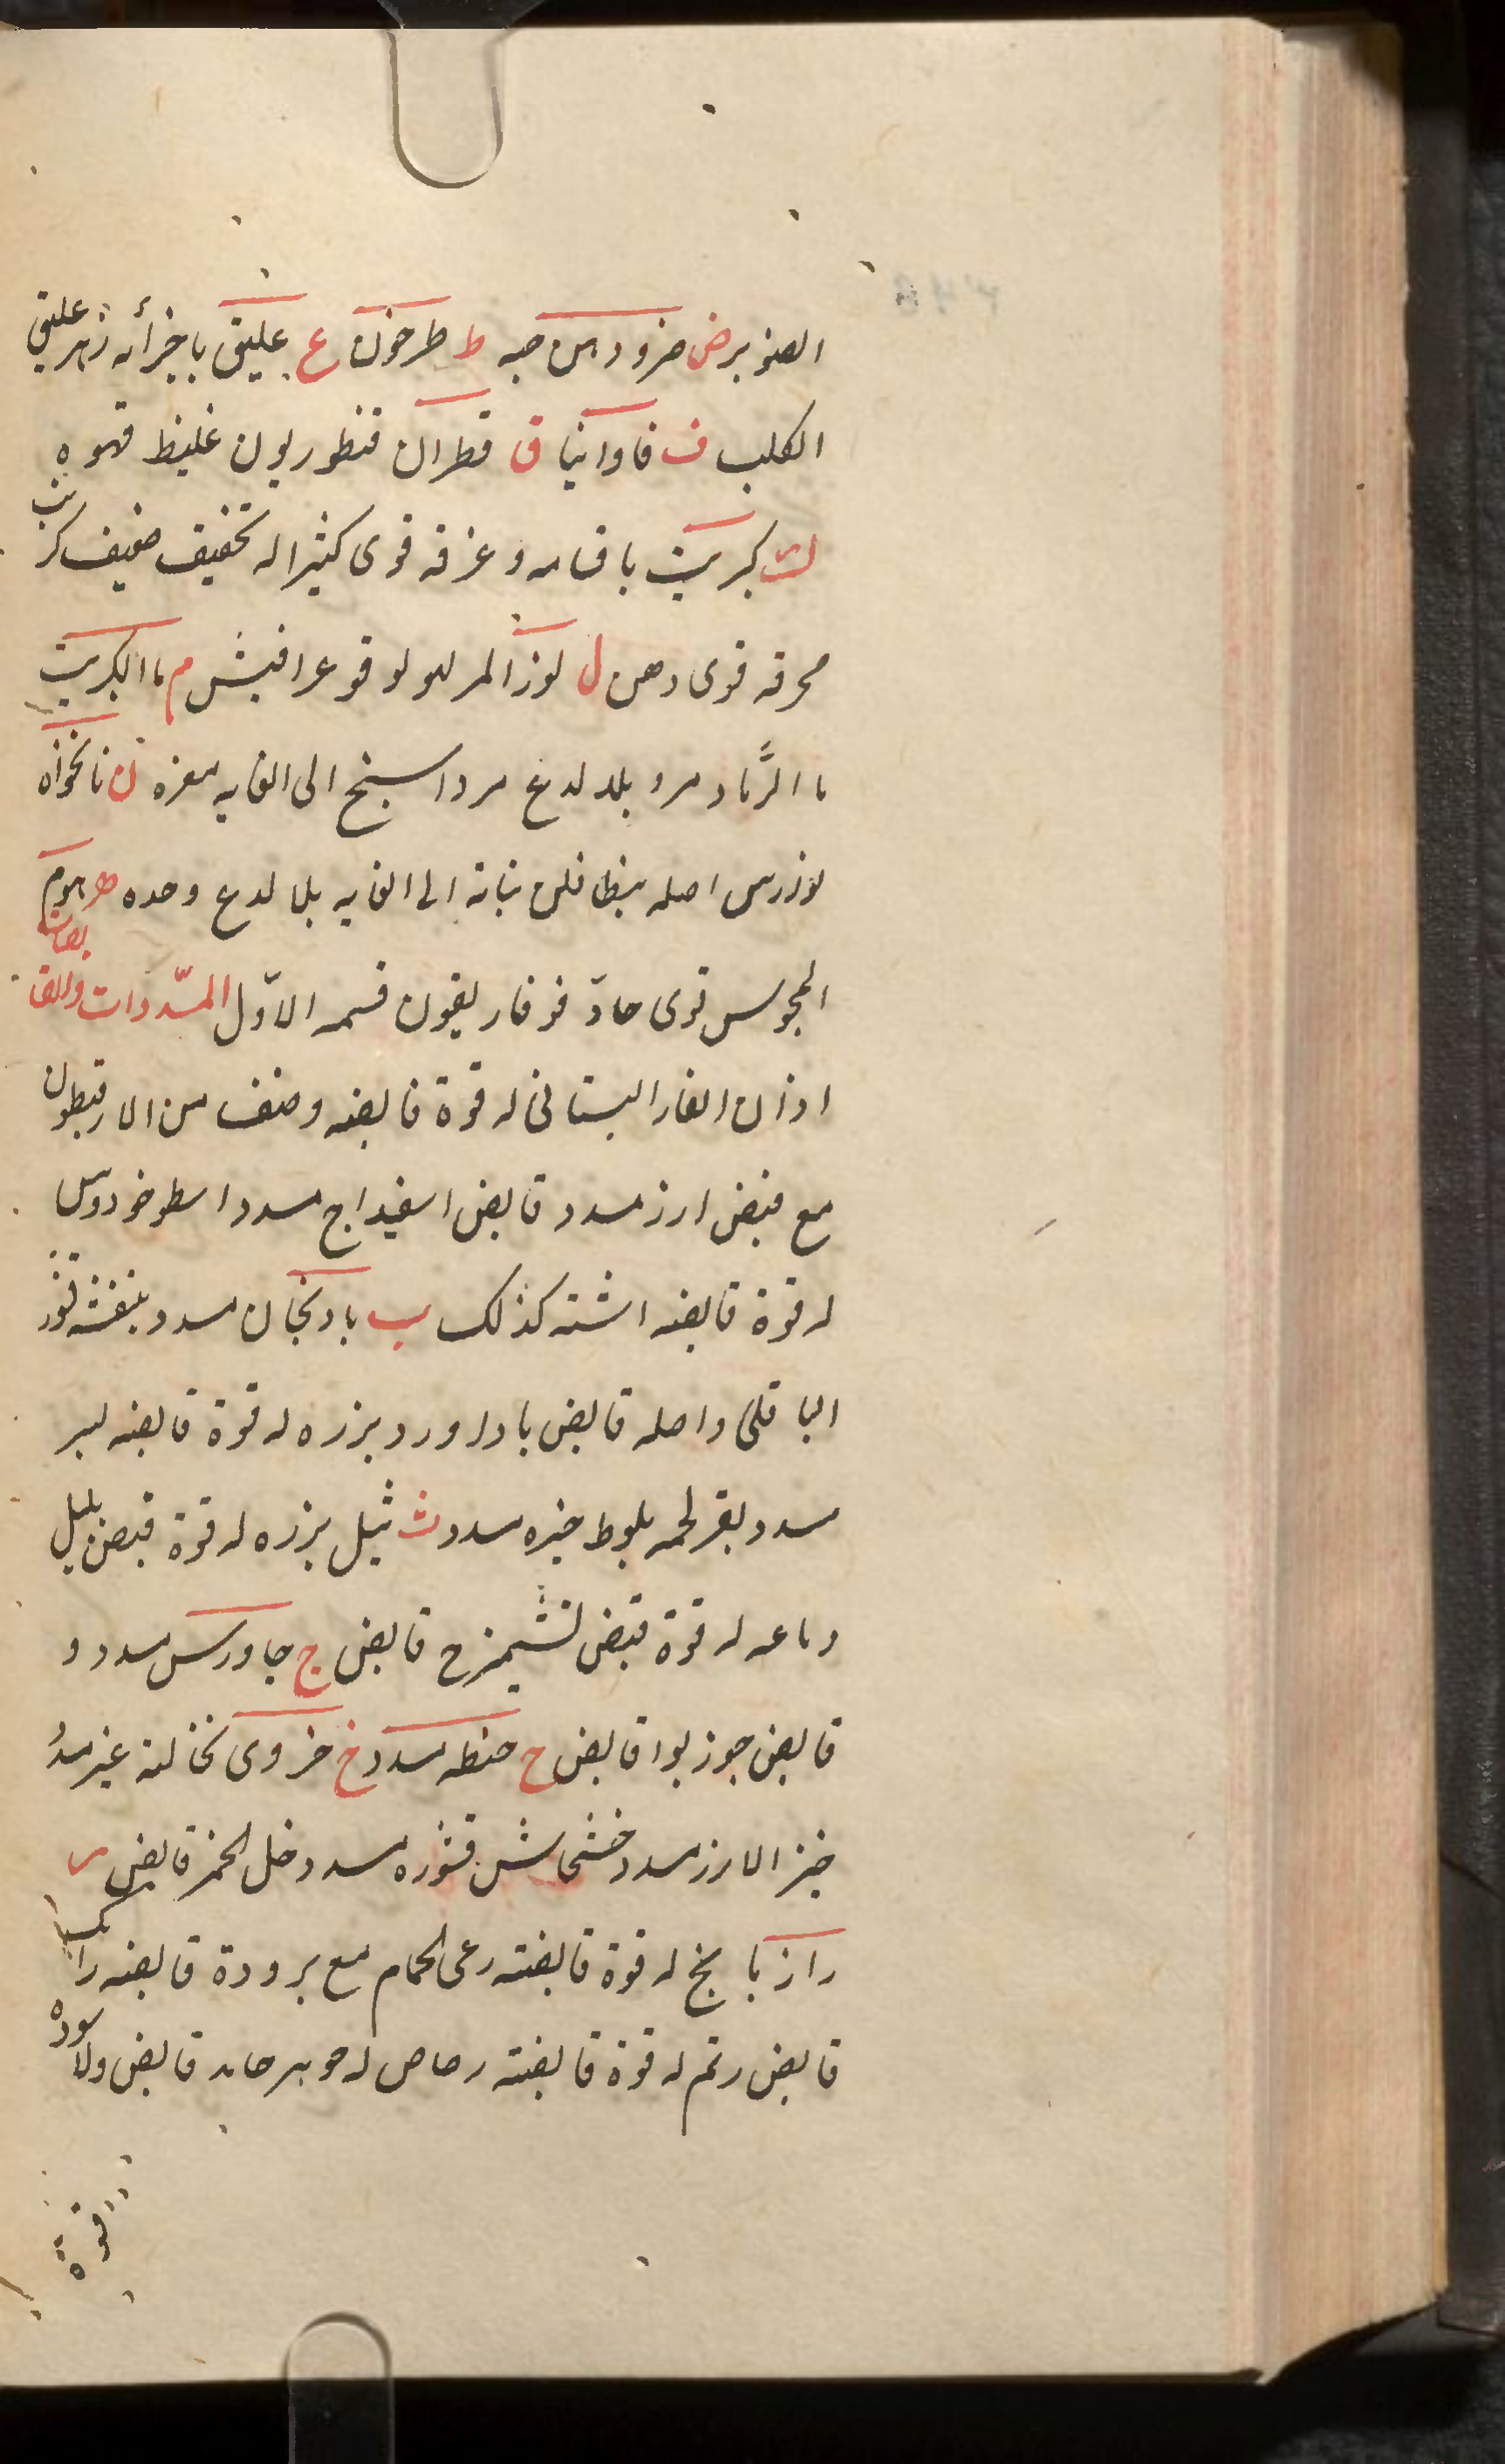 الصنوبر ض ضرو دهن حبه ط طرخون ع عليق باجزائه زهر عليق
الكلب ف فاوانيا ق قطران قنطوريون غليظ قهوه
ك كبريت باقسامه وغرفه قوى كثيرا له تجفيف ضعيف كرنب
محرقه قوى دهن ل لوز المر لولوقوعرافيش م ماء الكبريت
ماء الرماد مرو بلا لدغ مرداسنج الى الغايه مغره ن نانخواه
اصله الى الغايه بلا لدع وحده ه هوم
المجوس قوى حادّ فوفاريقون قسمه الاوّل المسددات والقابضات
اذان الفار البستانى له قوة قابضه وصنف من الارقيطون
مع قبض ارز مسدد قابض اسفيداج مسدد اسطوخودوس
له قوة قابضه اشنه كذلك ب بادنجان مسدد بنفشه قشور
الباقلى واصله قابض باداورد بزره له قوة قابضه لبر
مسدد بقر لحمه بلوط خبزه مسدد ث ثيل بزره له قوة قبض بليل
له قوة قبض تشميزج قابض ج جاورس مسدد و
قابض جوز بوا قابض ح حنطه مسدد خ خروى نخالته غير مسدد
خبز الارز مسدد خشخاش قشوره مسدد خل الخمر قابض ر
رازيانج له قوة قابضته رعى الحمام مع برودة قابضه رامك
قابض رتم له قوة قابضته رصاص له جوهر جامد قابض ولاسوده
قوة